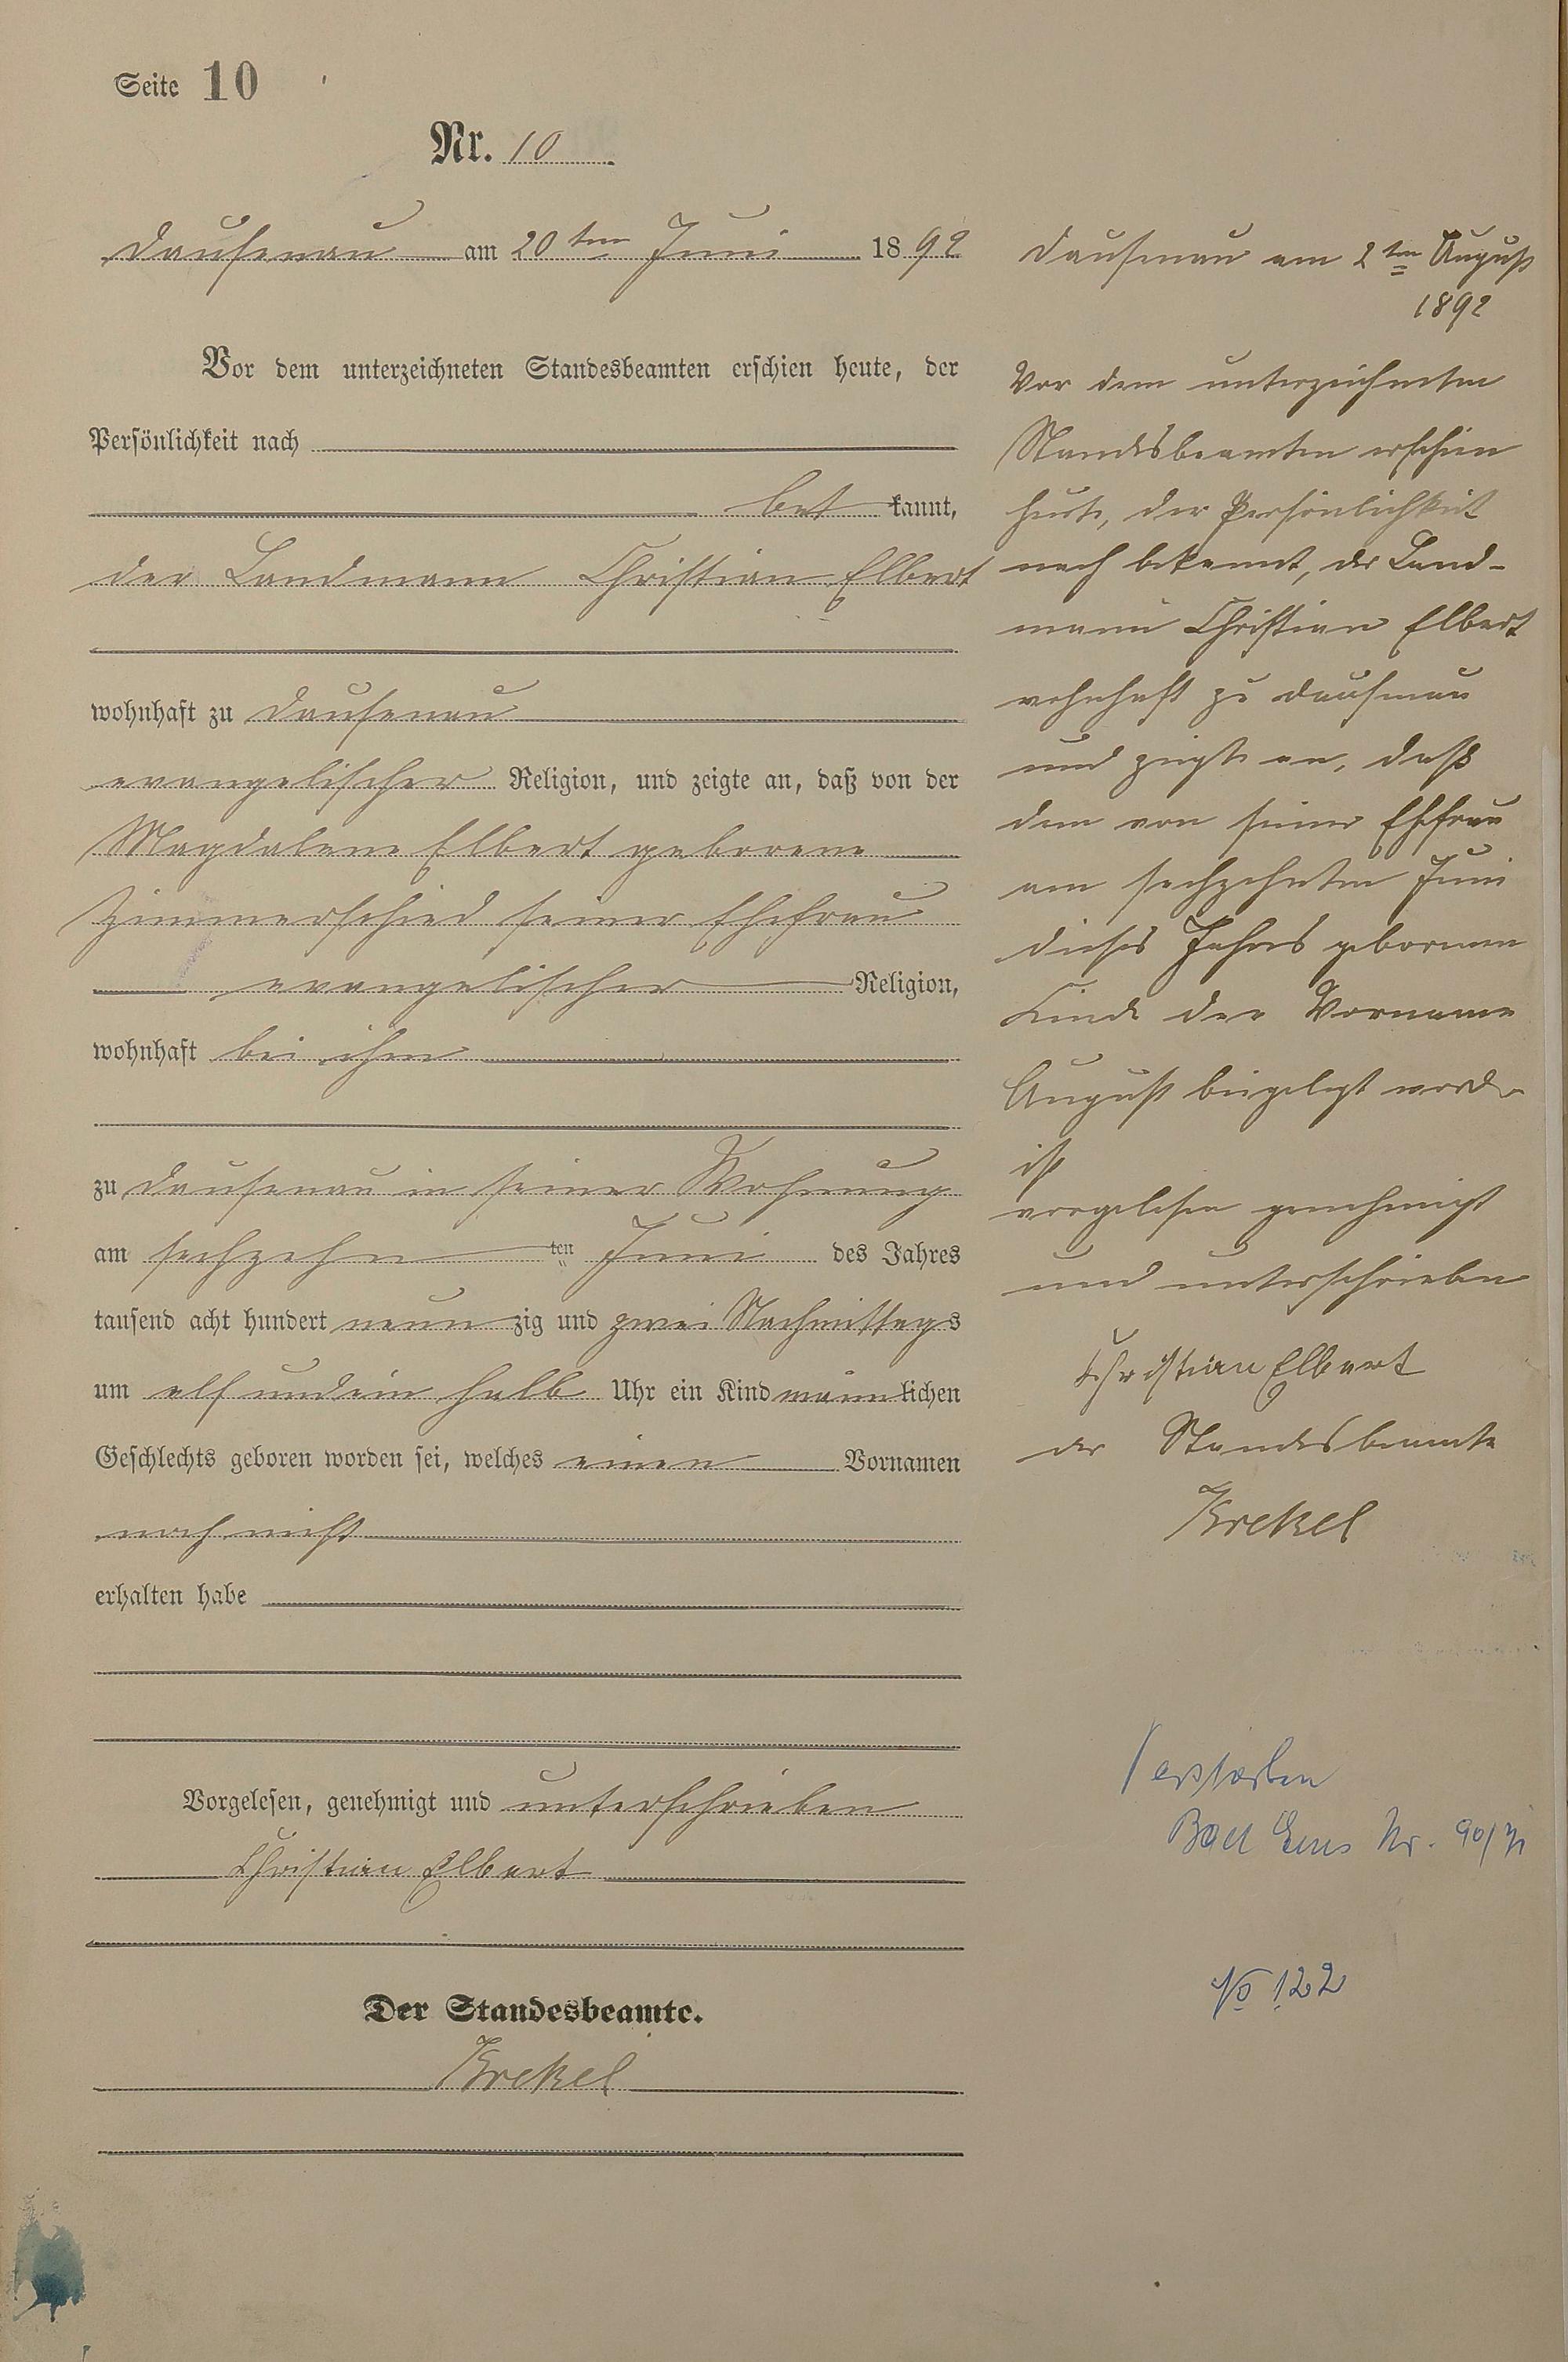 Seite 10
Nr. 10
Dausenau am 20ten Juni 1892
Vor dem unterzeichneten Standesbeamten erschien heute, der
Persönlichkeit nach
be kannt,
der Landmann Christian Elbert
wohnhaft zu Dausenau
evangelischer Religion, und zeigte an, daß von der
Magdalene Elbert geborene
Zimmerschied seiner Ehefrau
evangelischer Religion,
wohnhaft bei ihm
zu Dausenau in seiner Wohnung
am sechzehn ten Juni des Jahres
tausend acht hundert neun zig und zwei Nachmittags
um elf und ein halb Uhr ein Kind männ lichen
Geschlechts geboren worden sei, welches einen Vornamen
noch nicht
erhalten habe
Vorgelesen, genehmigt und unterschrieben
Christian Elbert
Der Standesbeamte.
Krekel
Dausenau am 2ten August
1892
Vor dem unterzeichneten
Standesbeamten erschien
heute, der Persönlichkeit
nach bekannt, der Land-
mann Christian Elbert
wohnhaft zu Dausenau
und zeigte an, daß
dem von seiner Ehefrau
am sechzehnten Juni
dieses Jahres geborenen
Kinde der Vorname
August beigelegt worden
ist
vorgelesen genehmigt
und unterschrieben
Christian Elbert
der Standesbeamte
Krekel
Verstorben
Bad Ems Nr. 90/71
No 122